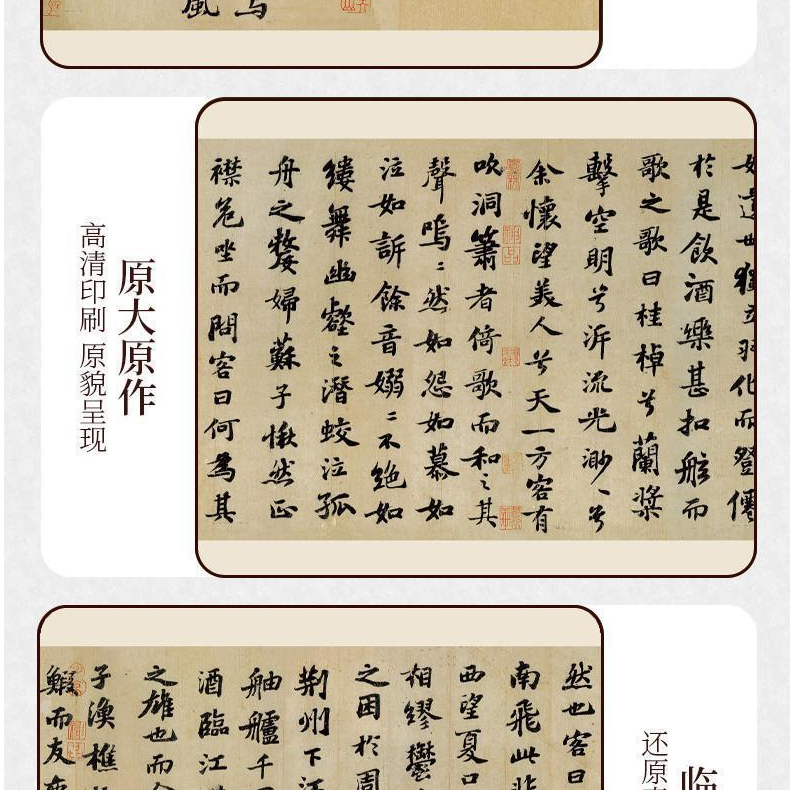 風
原大原作
高清印刷 原貌呈现
世獨立羽化而登僊
於是飲酒樂甚扣舷而
歌之歌曰桂棹兮蘭槳
擊空明兮泝流光渺〻兮
余懷望美人兮天一方客有
吹洞簫者倚歌而和之其
聲嗚〻然如怨如慕如
泣如訴餘音嫋〻不絕如
縷舞幽壑之潛蛟泣孤
舟之嫠婦蘇子愀然正
襟危坐而問客曰何為其
临
还原
然也客曰
南飛此非
西望夏口
相繆鬱
之困於周
荊州下江
舳艫千
酒臨江
之雄也而今
子漁樵
鰕而友麋